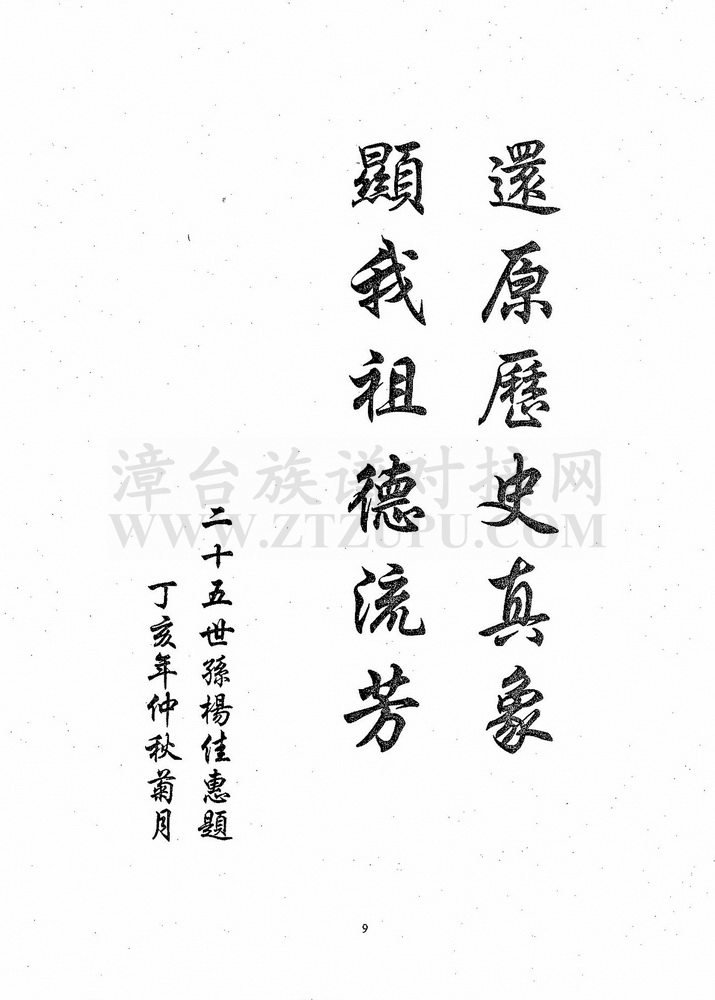 還原歷史真象
顯我祖德流芳
二十五世孫楊佳惠題
丁亥年仲秋菊月
漳台族谱对接网
WWW.ZTZUPU.COM
9